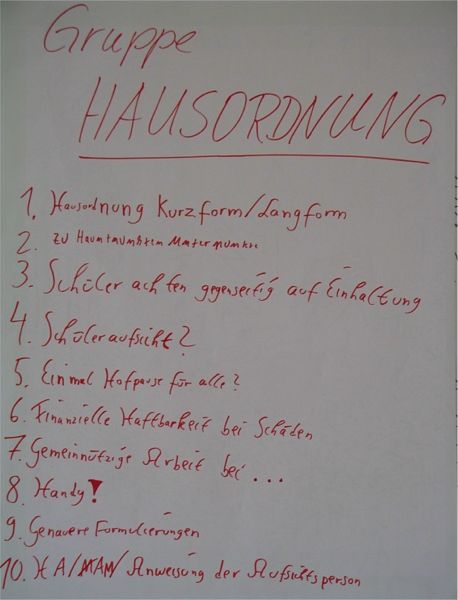 Gruppe
HAUSORDNUNG
1. Hausordnung Kurzform/Langform
2. zu
3. Schüler achten gegenseitig auf Einhaltung
4. Schüleraufsicht?
5. Einmal Hofpause für alle?
6. Finanzielle Haftbarkeit bei Schäden
7. Gemeinnützige Arbeit bei ...
8. Handy!
9. Genauere Formulierungen
10. HA/ Anweisung der Aufsichtsperson